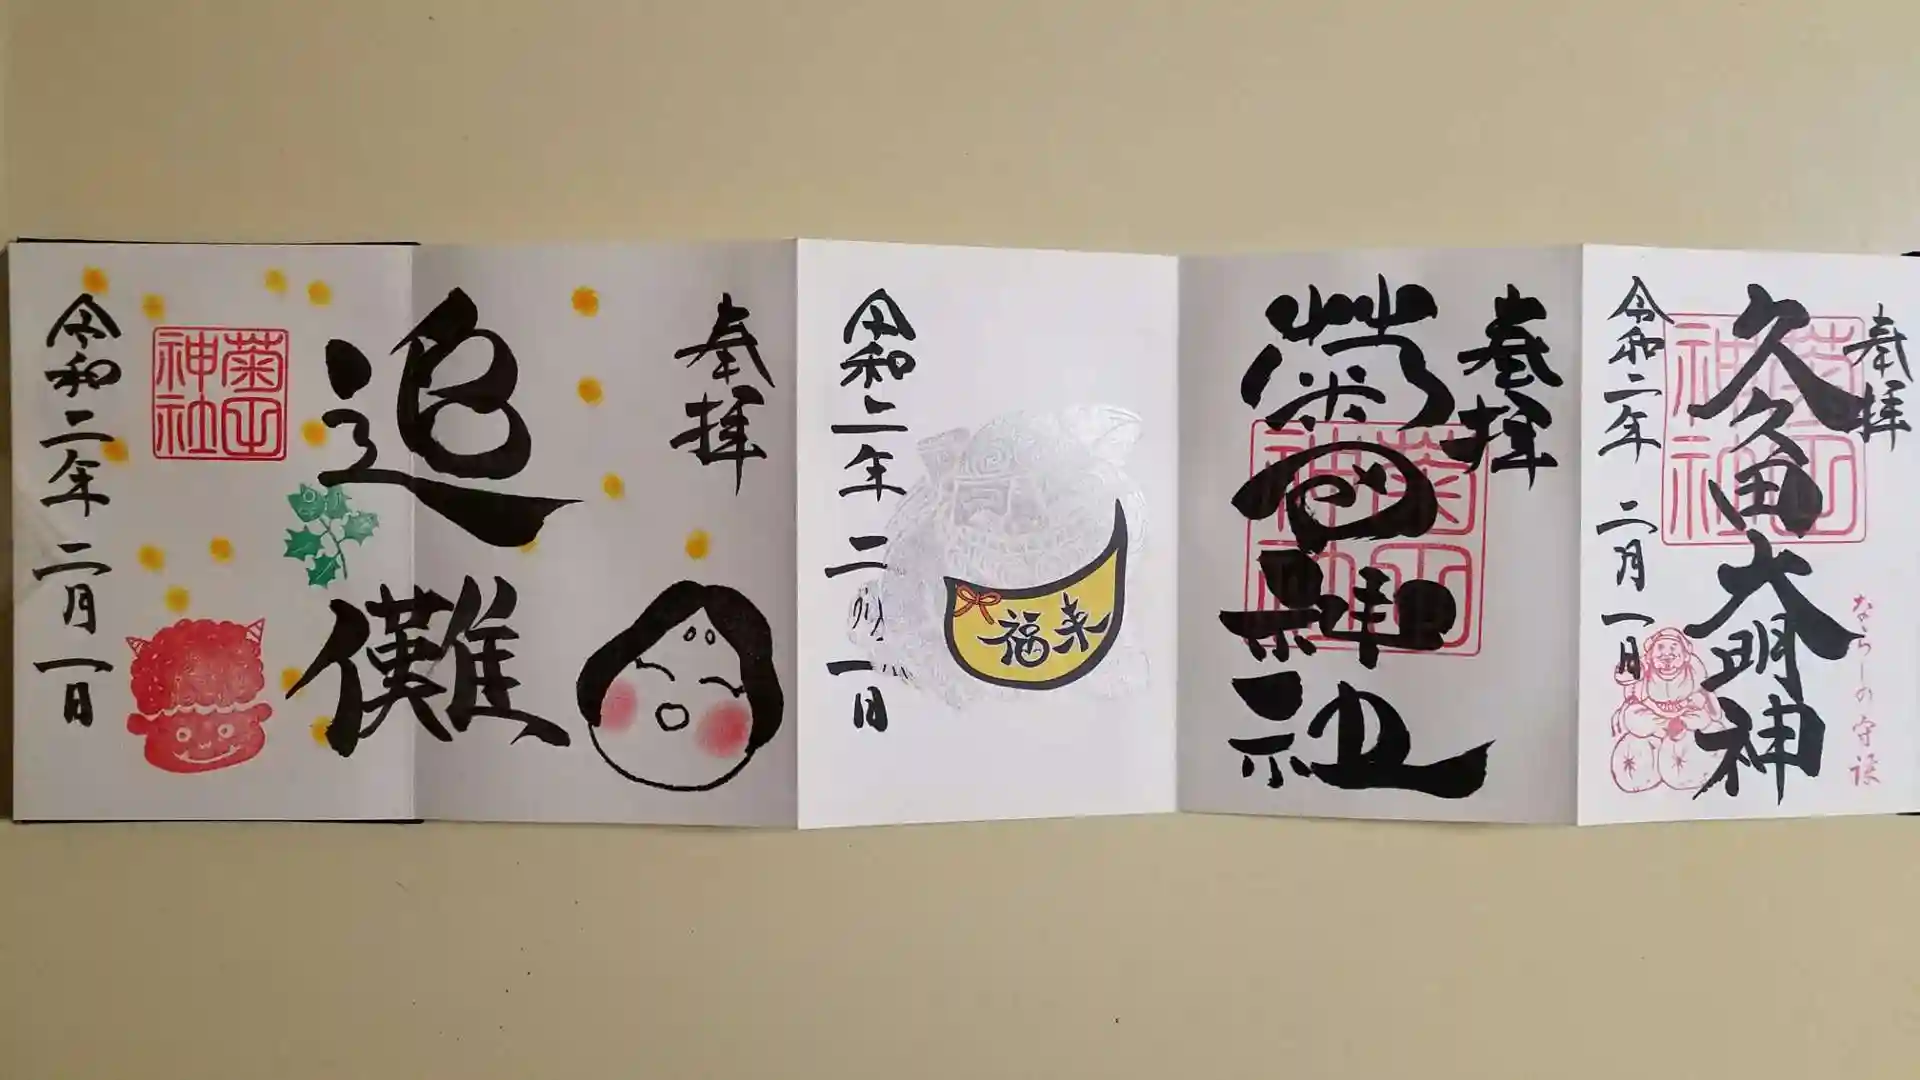 奉拝
久久田大明神
菊田神社
ならしの守護
令和二年 二月一日
奉拝
菊田神社
菊田神社
福来
令和二年 二月一日
奉拝
追儺
菊田神社
令和二年 二月一日